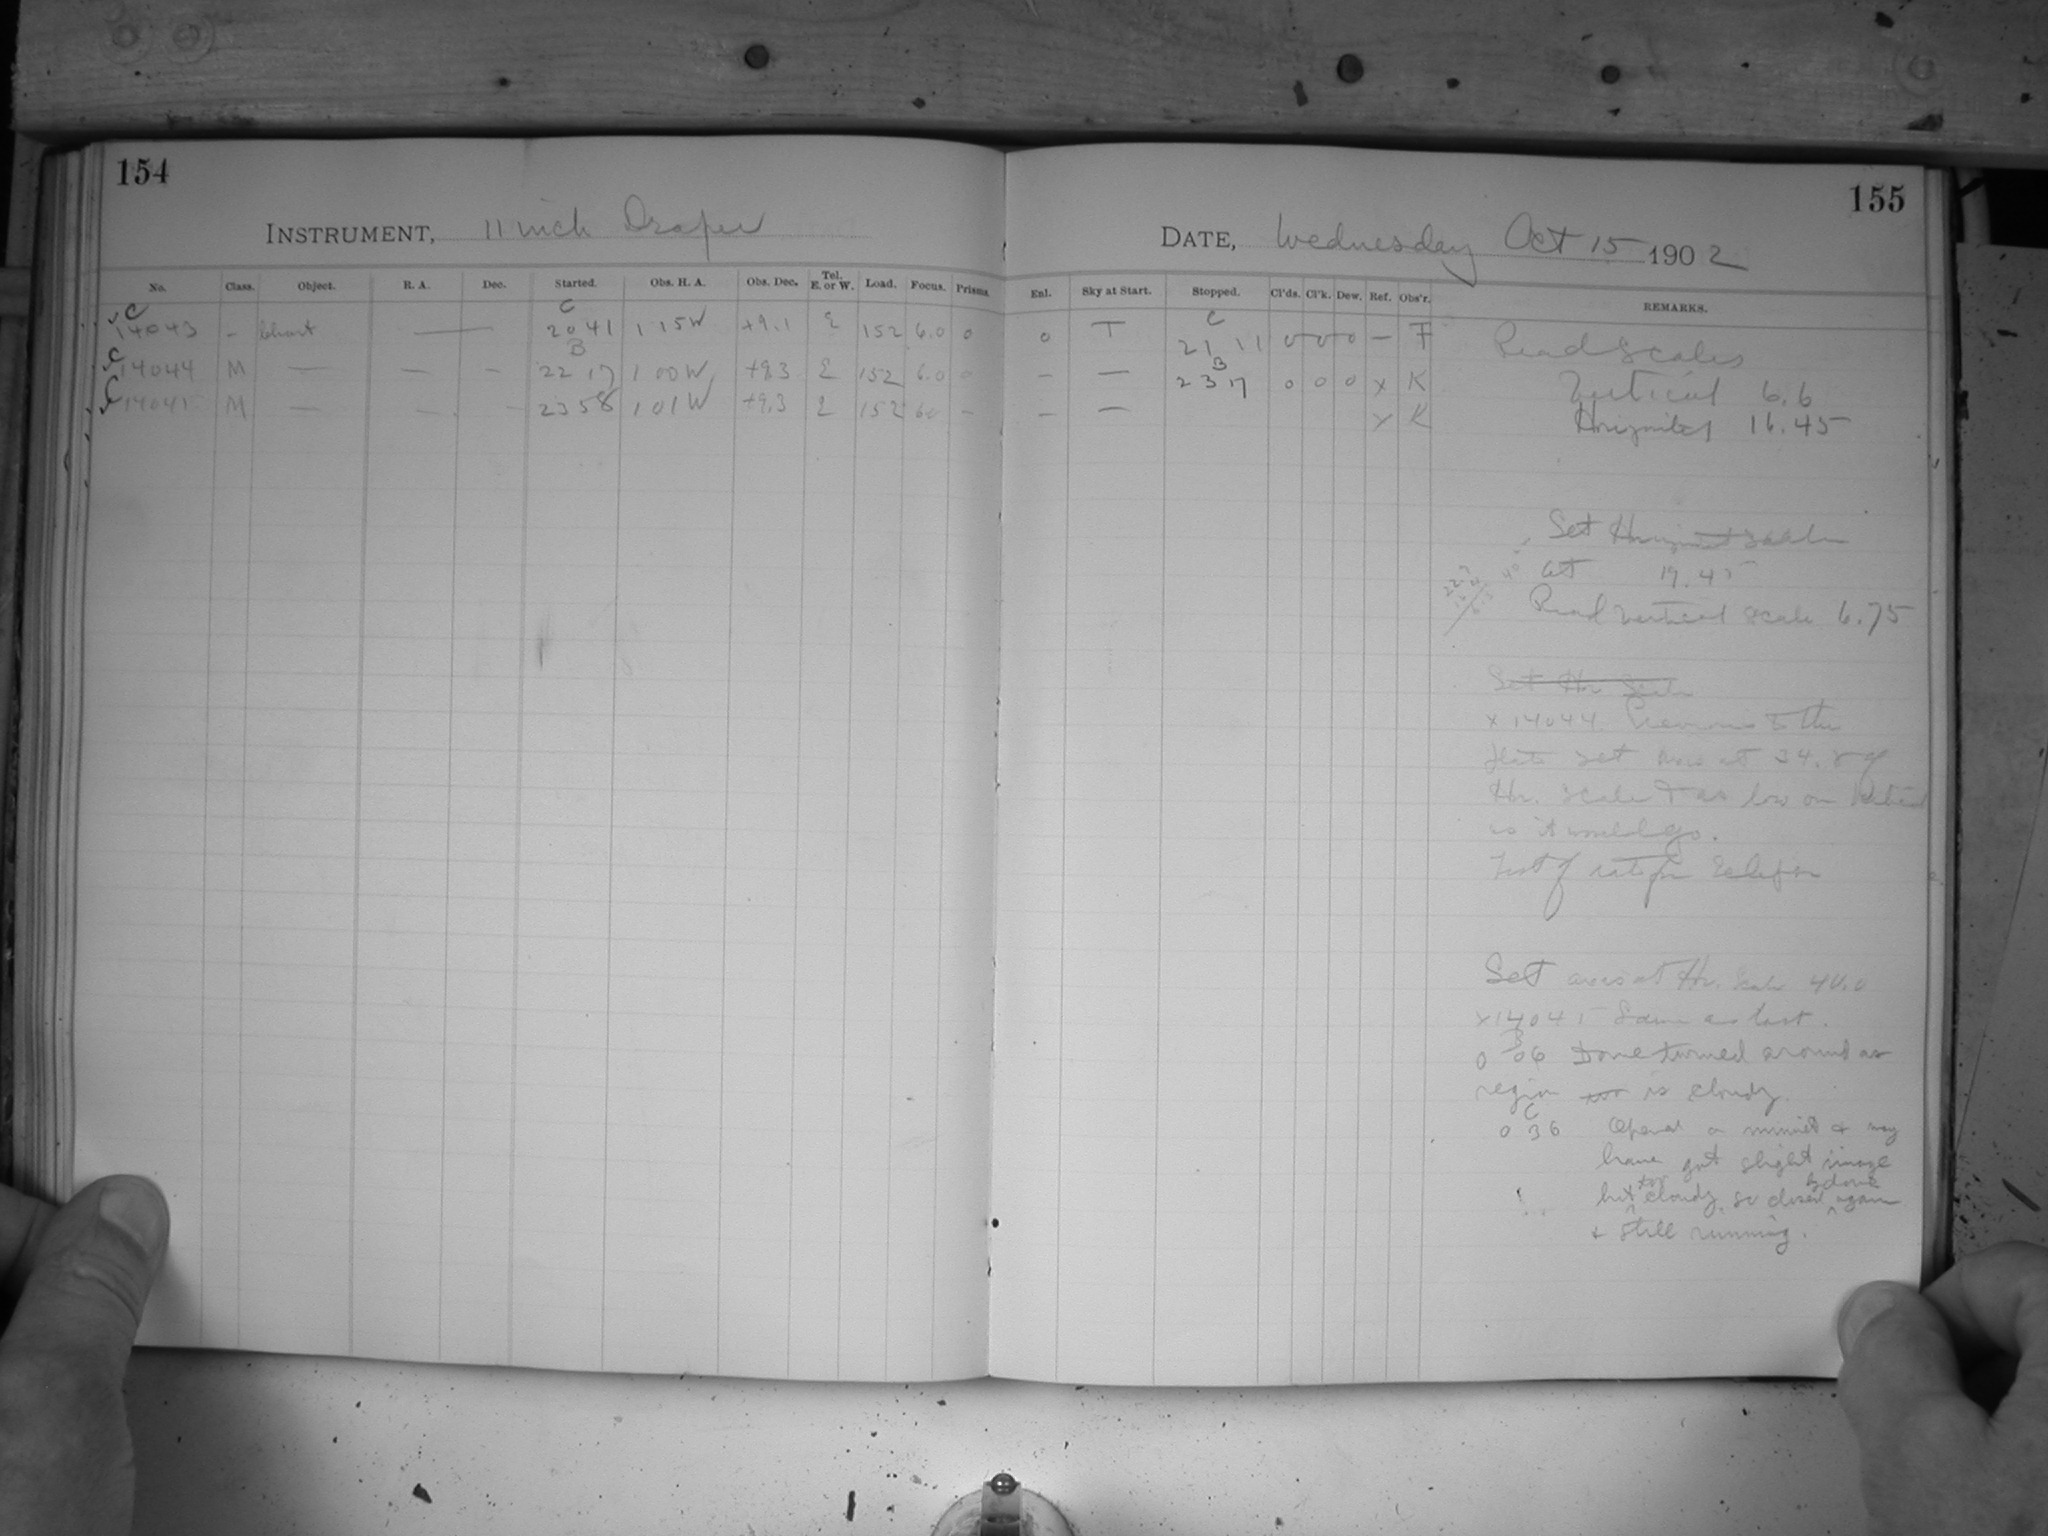 154
INSTRUMENT, 11 inch Draper
No. Class. Object. R. A. Dec. Started. Obs. H. A. Obs. Dec. Tel. E. or W. Load. Focus. Prisms.
C C
14043 – Chart — 20 41 1 15 W +9.1 E 152 6.0 0
C B
14044 M — — – 22 17 1 00 W +9.3 E 152 6.0 0
C
14045 M — — – 23 58 1 01 W +9.3 E 152 60 –
155
DATE, Wednesday Oct 15 1902
Enl. Sky at Start. Stopped. Cl'ds. Cl'k. Dew. Ref. Obs'r. REMARKS.
C
0 T 21 11 0 0 0 – F
B
– — 23 17 0 0 0 x K
– — x K
Read Scales
Vertical 6.6
Horizontal 16.45
Set Horizontal Scale
at 19.45
Read Vertical Scale 6.75
Set Hr Scale
x 14044 Previous to the
plate set at 34.8 of
Hr. Scale & as low on Vertical
as it would go.
Test of rate for Eclipse
Set at Hr. Scale 40.0
x 14045 Same as last.
B
0 06 Dome turned around as
region is cloudy.
C
0 36 Opened a minute & may
have got slight image
but too cloudy, so closed dome again
& still running.